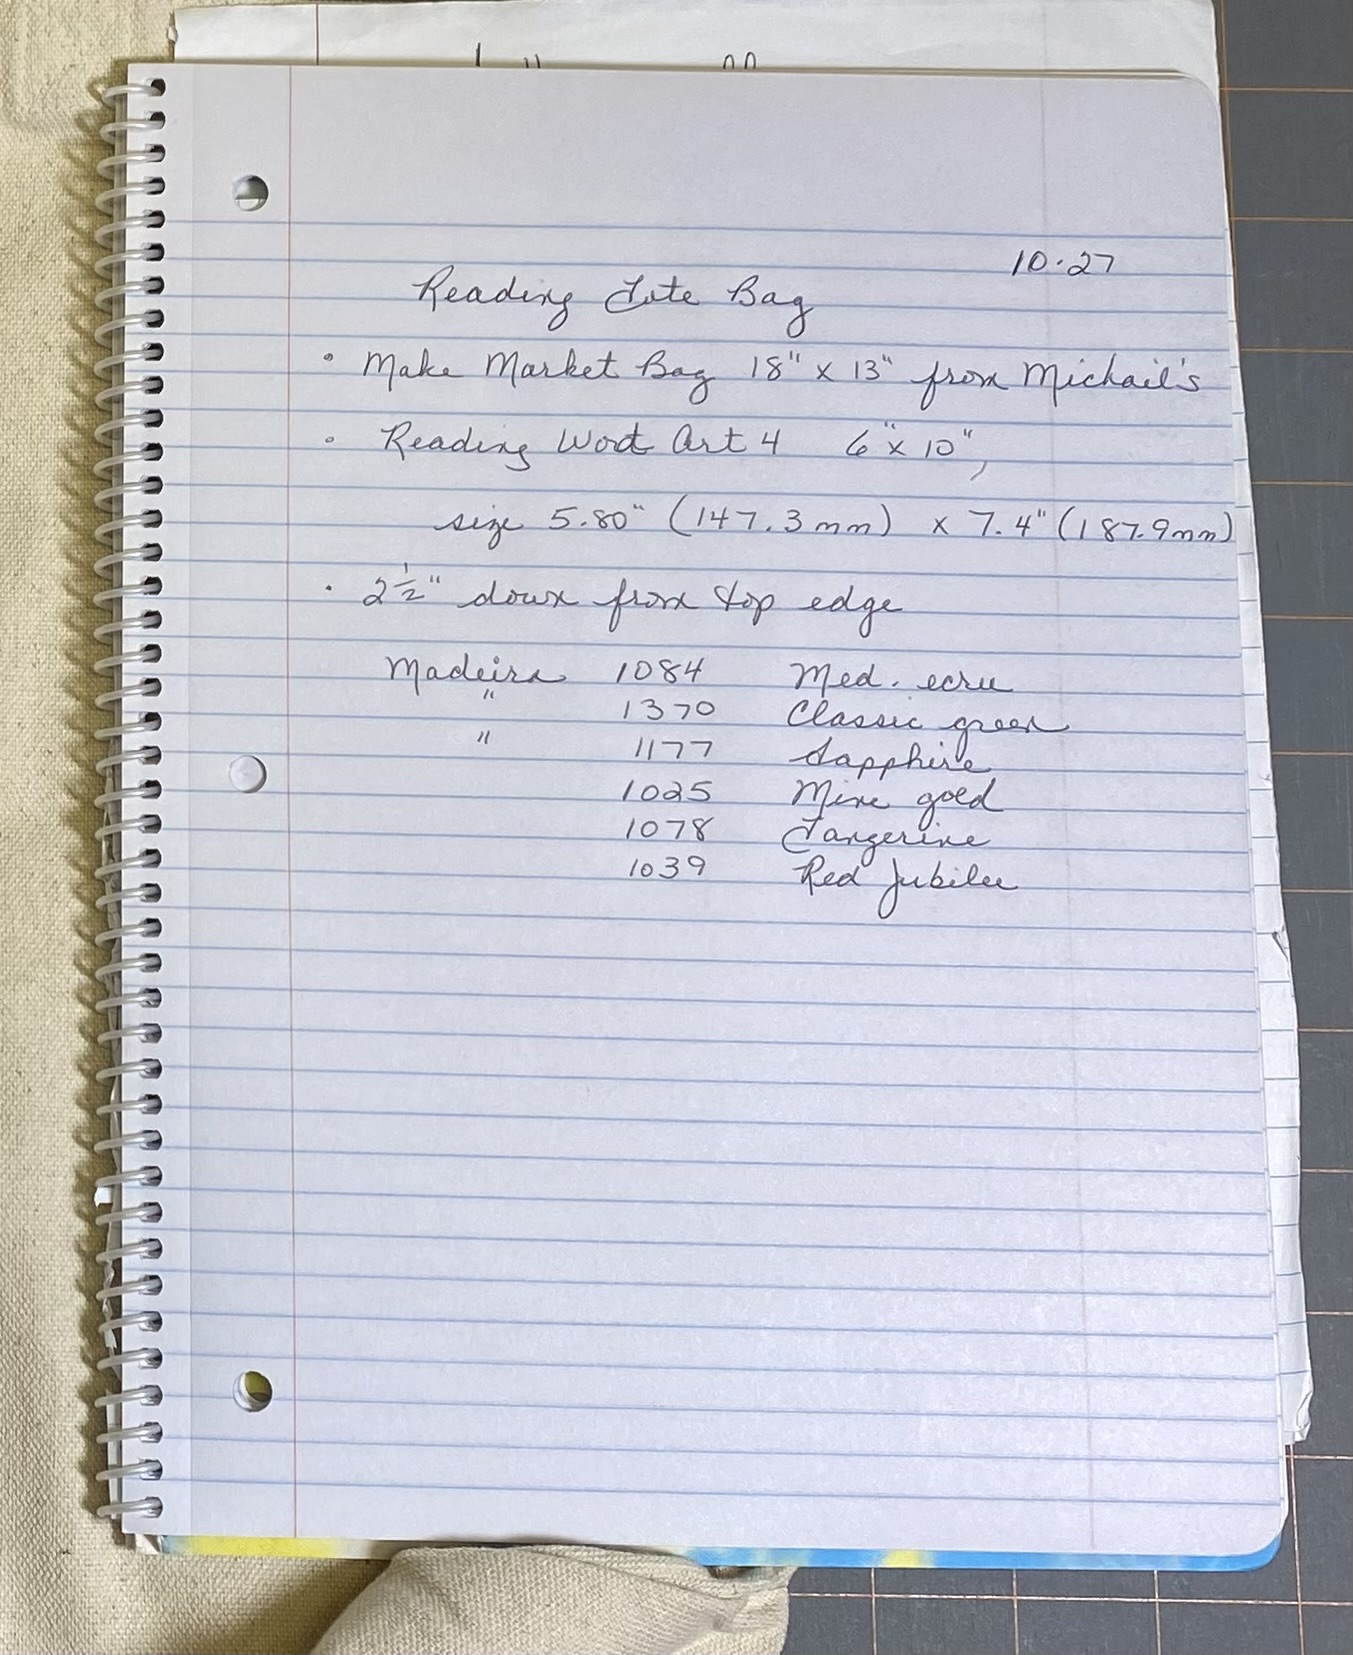 10·27
Reading Tote Bag
• Make Market Bag 18" x 13" from Michail's
• Reading Word Art 4 6" x 10",
size 5.80" (147.3mm) x 7.4" (187.9mm)
• 2 1/2" down from top edge
Madeira 1084 Med. ecru
" 1370 Classic green
" 1177 Sapphire
1025 Mine gold
1078 Tangerine
1039 Red Jubilee